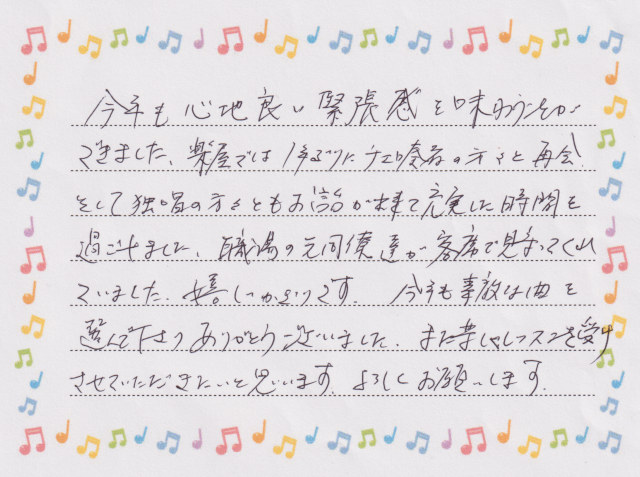 今年も心地良い緊張感を味わうことが
できました。楽屋では1年ぶりにチェロ奏者の方々と再会。
そして独唱の方々ともお話が出来て充実した時間を
過ごせました。職場の元同僚達が客席で見守ってくれ
ていました。嬉しいかぎりです。今年も素敵な曲を
選んで下さりありがとうございました。またレッスンを受け
させていただきたいと思います。よろしくお願いします。